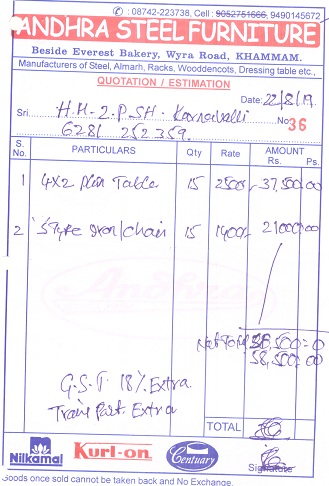 ✆ : 08742-223738, Cell : 9052751666, 9490145672
ANDHRA STEEL FURNITURE
Beside Everest Bakery, Wyra Road, KHAMMAM.
Manufacturers of Steel, Almarh, Racks, Wooddencots, Dressing table etc.,
QUOTATION / ESTIMATION
Date: 22/8/19.
Sri. H.M-2.P.S.H. No 36
6281 252359.
S. No. PARTICULARS Qty Rate AMOUNT Rs. Ps.
1 4X2 Plin Table 15 2500/- 37,500 00
2 'S' Type Iron/chair 15 1400/- 21000 00
Net Total 58,500=0
58,500=00
G.S.T 18% Extra
Trans Part. Extra
TOTAL
Nilkamal Kurl-on Centuary
Signature
Goods once sold cannot be taken back and No Exchange.